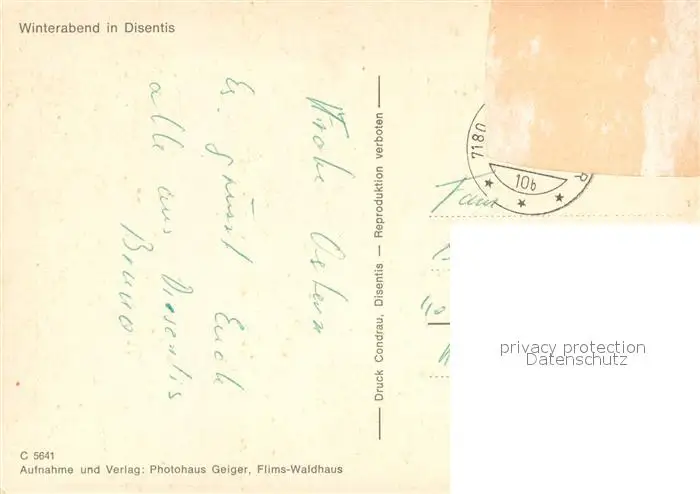 Winterabend in Disentis
Frohe Ostern
Es grüsst Euch
alle aus Disentis
Bruno
Druck Condrau, Disentis — Reproduktion verboten
7180
10b
Fam
privacy protection
Datenschutz
C 5641
Aufnahme und Verlag: Photohaus Geiger, Flims-Waldhaus